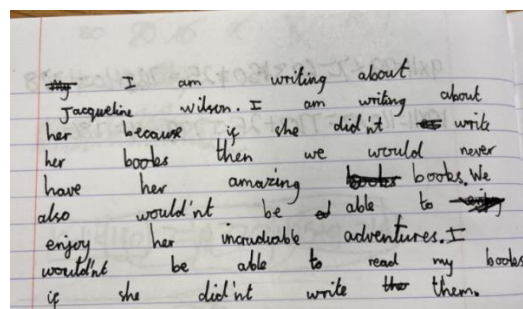 I am writing about
Jacqueline wilson. I am writing about
her because if she did'nt write
her books then we would never
have her amazing books. We
also would'nt be able to
enjoy her incruduable adventures. I
would'nt be able to read my books
if she did'nt write them.